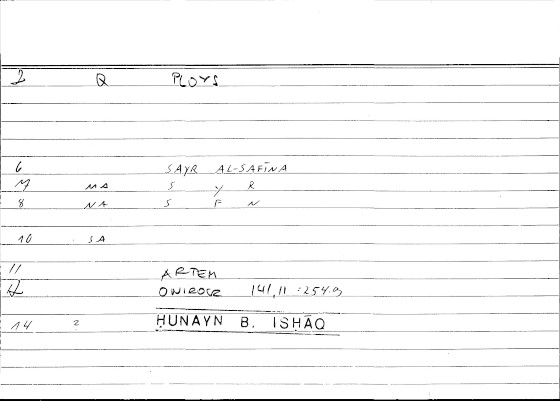 2 Q PLOYS
6 SAYR AL-SAFĪNA
M MA S Y R
8 NA S F N
10 SA
11 ARTEM
12 ONIROCR 141,11 :254.9
14 2 ḤUNAYN B. ISḤĀQ